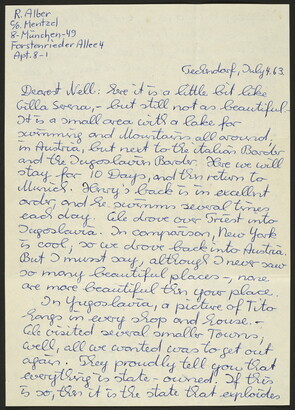 R. Alber
c/o. Mentzel
8-München-49
Forstenrieder Allee 4
Apt. 8-1
July 4. 63.
Dearest Nell: Here it is a little bit like
Villa Serena, - but still not as beautiful.
It is a small area with a lake for
swimming and Mountains all around,
in Austria, but next to the italian Border
and the Jugoslavian Border. Here we will
stay for 10 Days, and then return to
Munich. Henry's back is in excellent
order, and he swimms several times
each day. We drove over Triest into
Jugoslavia. In comparison, New York
is cool, so we drove back into Austria.
But I must say, although I never saw
so many beautiful places -, none
are more beautiful then your place.
In Yugoslavia, a picture of Tito
hangs in every shop and house. -
We visited several smaller Towns,
well, all we wanted was to get out
again. They proudly tell you that
everything is state-owned. If this
is so, then it is the state that exploides